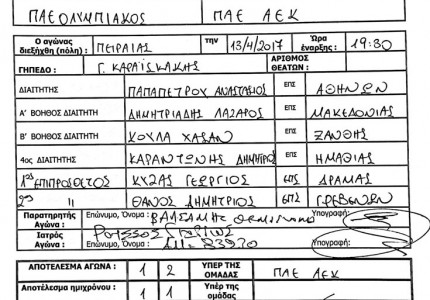 ΠΑΕ ΟΛΥΜΠΙΑΚΟΣ ΠΑΕ ΑΕΚ
Ο αγώνας διεξήχθη (πόλη) : ΠΕΙΡΑΙΑΣ την 13/4/2017 Ώρα έναρξης : 19:30
ΓΗΠΕΔΟ : Γ. ΚΑΡΑΪΣΚΑΚΗΣ ΑΡΙΘΜΟΣ ΘΕΑΤΩΝ :
ΔΙΑΙΤΗΤΗΣ ΠΑΠΑΠΕΤΡΟΥ ΑΝΑΣΤΑΣΙΟΣ ΕΠΣ ΑΘΗΝΩΝ
Α' ΒΟΗΘΟΣ ΔΙΑΙΤΗΤΗ ΔΗΜΗΤΡΙΑΔΗΣ ΛΑΖΑΡΟΣ ΕΠΣ ΜΑΚΕΔΟΝΙΑΣ
Β' ΒΟΗΘΟΣ ΔΙΑΙΤΗΤΗ ΚΟΥΛΑ ΧΑΣΑΝ ΕΠΣ ΞΑΝΘΗΣ
4ος ΔΙΑΙΤΗΤΗΣ ΚΑΡΑΝΤΩΝΗΣ ΔΗΜΗΤΡΙΟΣ ΕΠΣ ΗΜΑΘΙΑΣ
1ος ΕΠΙΠΡΟΣΘΕΤΟΣ ΚΥΖΑΣ ΓΕΩΡΓΙΟΣ ΕΠΣ ΔΡΑΜΑΣ
2ος " ΘΑΝΟΣ ΔΗΜΗΤΡΙΟΣ ΕΠΣ ΓΡΕΒΕΝΩΝ
Παρατηρητής Αγώνα : Επώνυμο, Όνομα : ΒΑΛΣΑΜΗΣ Υπογραφή:
Ιατρός Αγώνα : Επώνυμο, Όνομα : Υπογραφή:
ΑΠΟΤΕΛΕΣΜΑ ΑΓΩΝΑ : 1 2 ΥΠΕΡ ΤΗΣ ΟΜΑΔΑΣ ΠΑΕ ΑΕΚ
Αποτέλεσμα ημιχρόνου : 1 1 Υπέρ της ομάδας